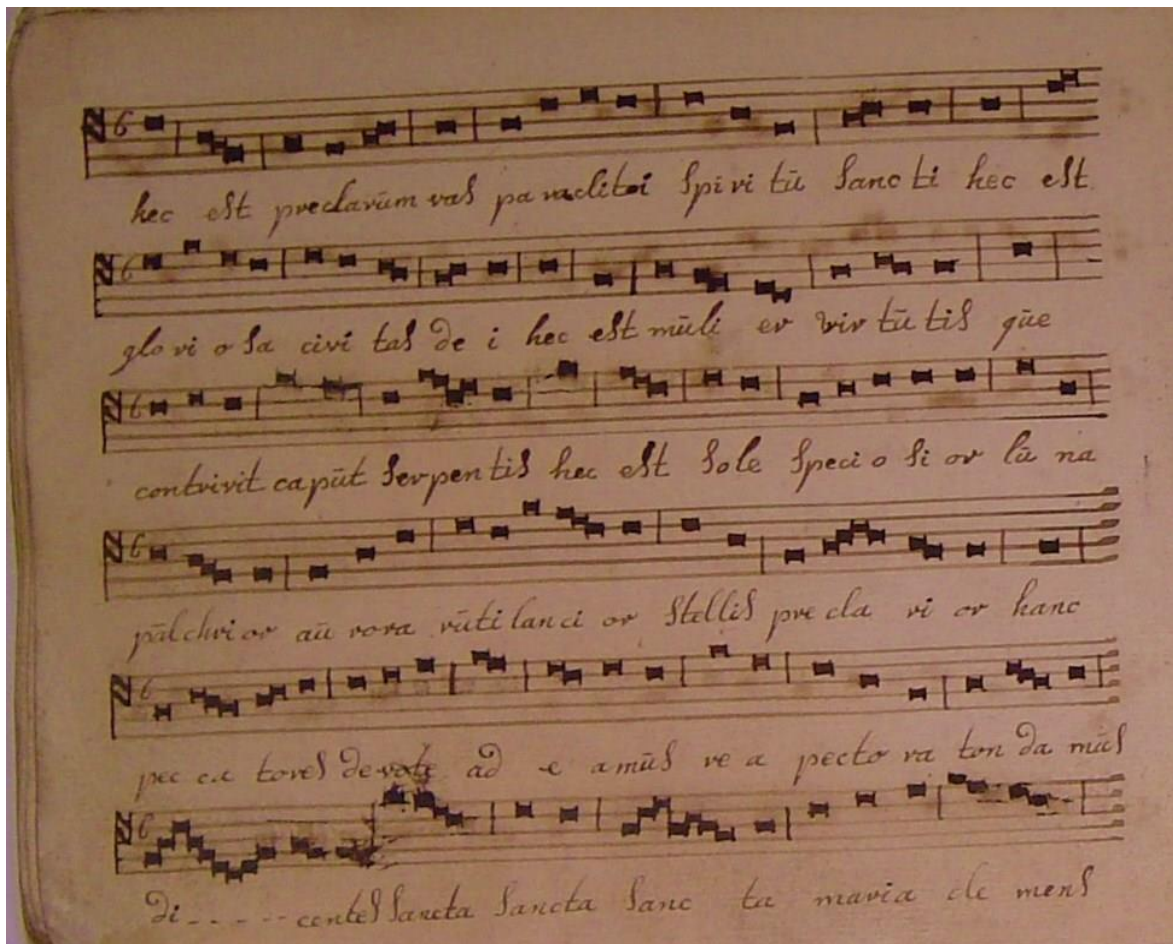 hec est preclarūm vas paraclitoi spiri tū sanc ti hec est
glo ri o sa civi tas de i hec est mūli er vir tū tis qūe
contrivit capūt serpentis hec est sole speci o si or lū na
pūlchri or aū rora rūti lanci or stellis pre cla ri or hanc
pec ca tores devote ad e amūs re a pecto ra ton da mūs
di - - - - - centes sancta sancta sanc ta maria cle mens